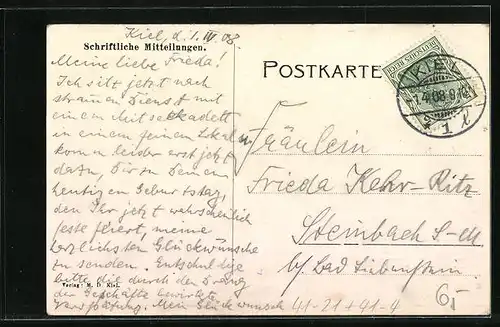 Kiel, d. 1. IV 08.
Schriftliche Mitteilungen.
Meine liebe Frieda!
Ich sitze jetzt nach
strammen Dienst mit
einem Mitseekadett
in einem feinen Lokal u.
komme leider erst jetzt
dazu, Dir zu Deinem
heutigen Geburtstag,
den Ihr jetzt wahrscheinlich
feste feiert, meine
herzlichsten Glückwünsche
zu senden. Entschuldige
bitte die durch den Drang
der Geschäfte bewirkte
Verspätung. Mein Glückwunsch
Verlag: M. D. Kiel.
POSTKARTE
KIEL
1.4.08.9-10
1 l
Fräulein
Frieda Kehr-Ritz
Steinbach S-M
b/ Bad Liebenstein.
41-21+41-4
6,-